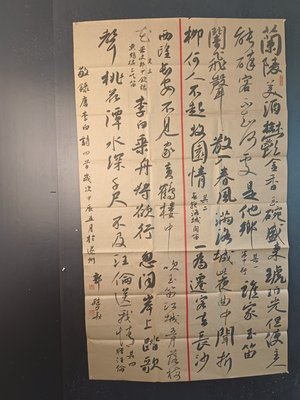 蘭陵美酒鬱金香玉碗盛來琥珀光但使主
能醉客不知何處是他鄉 其一 誰家玉笛
闇飛聲散入春風滿洛城此夜曲中聞折
柳何人不起故園情 其二 春夜洛城聞笛 一為遷客去長沙
西望長安不見家黃鶴樓中吹玉笛江城五月落梅
花 其三 李白乘舟將欲行忽聞岸上踏歌
聲桃花潭水深千尺不及汪倫送我情 其四 贈汪倫
敬錄唐李白詩四首歲次 五月於 郭